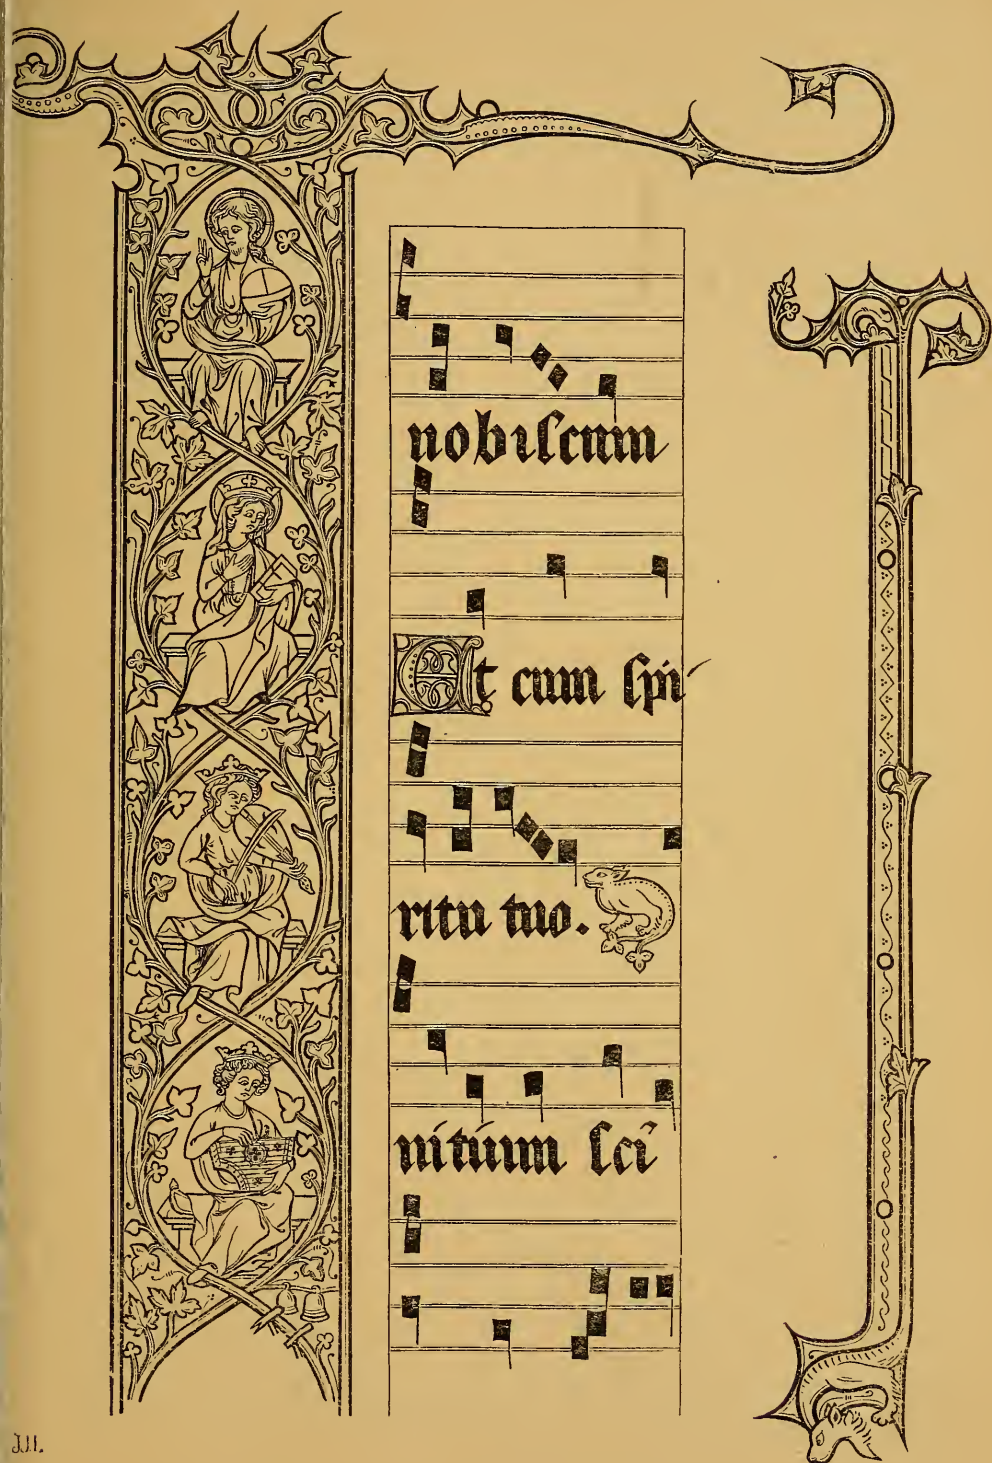 nobiſcum
Et cum ſpi
ritu tuo.
nituum ſci